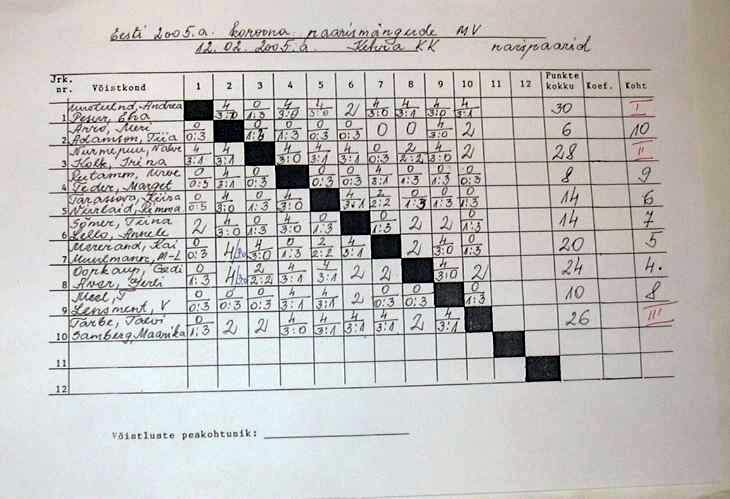 Eesti 2005.a. koroona paarismängude MV
12.02.2005.a. Kehra KK naispaarid
Jrk. nr. Võistkond 1 2 3 4 5 6 7 8 9 10 11 12 Punkte kokku Koef. Koht
1 Andrea 4 0 4 4 2 4 4 4 4 30 I
3:0 1:3 3:0 3:0 3:1 3:1
Arro, Meri 0 0 0 0 0 0 0 4 2 6 10
2 Adamson, Tiia 0:3 1:3 0:3 0:3 0:3 3:0
4 4 4 4 4 0 2 4 2 28 II
3 Kokk, Irina 3:1 3:1 3:0 3:1 3:1 0:3 2:2 3:0
0 4 0 0 0 4 0 0 0 8 9
4 Teder, Marget 0:3 3:1 0:3 0:3 0:3 3:1 1:3 1:3 0:3
0 4 0 4 4 2 0 0 0 14 6
5 3:0 1:3 3:0 3:1 2:2 1:3 1:3 1:3
Sömer, Tiina 2 4 0 4 0 0 2 2 0 14 7
6 Lello, Annele 3:0 1:3 3:0 1:3 1:3 1:3
Mererand, Kai 0 4 4 0 2 4 2 4 0 20 5
7 M-L 0:3 3:0 1:3 2:2 3:1 3:0 1:3
Oopkaup, Gedi 0 4 2 4 4 2 2 4 2 24 4.
8 Aver, 1:3 2:2 3:1 3:1 3:0
Meel, 0 0 0 4 4 2 0 0 0 10 8
9 Lensment, V 1:3 0:3 0:3 3:1 3:1 0:3 0:3 1:3
Tarbe, Taevi 0 2 2 4 4 4 4 2 4 26 III
10 Samberg Maarika 1:3 3:0 3:1 3:1 3:1 3:1
11
12
Võistluste peakohtunik: